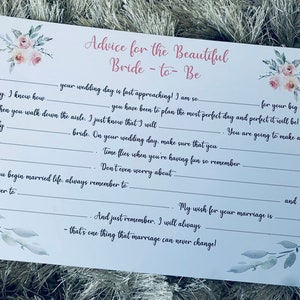 Advice for the Beautiful
Bride - to - Be
your wedding day is fast approaching! I am so for your big
I know how you have been to plan the most perfect day and perfect it will be!
you walk down the aisle. I just know that I will . You are going to make a
bride. On your wedding day, make sure that you
time flies when you're having fun so remember
. Don't even worry about
begin married life, always remember to and
to . My wish for your marriage is
. And just remember, I will always
- that's one thing that marriage can never change!